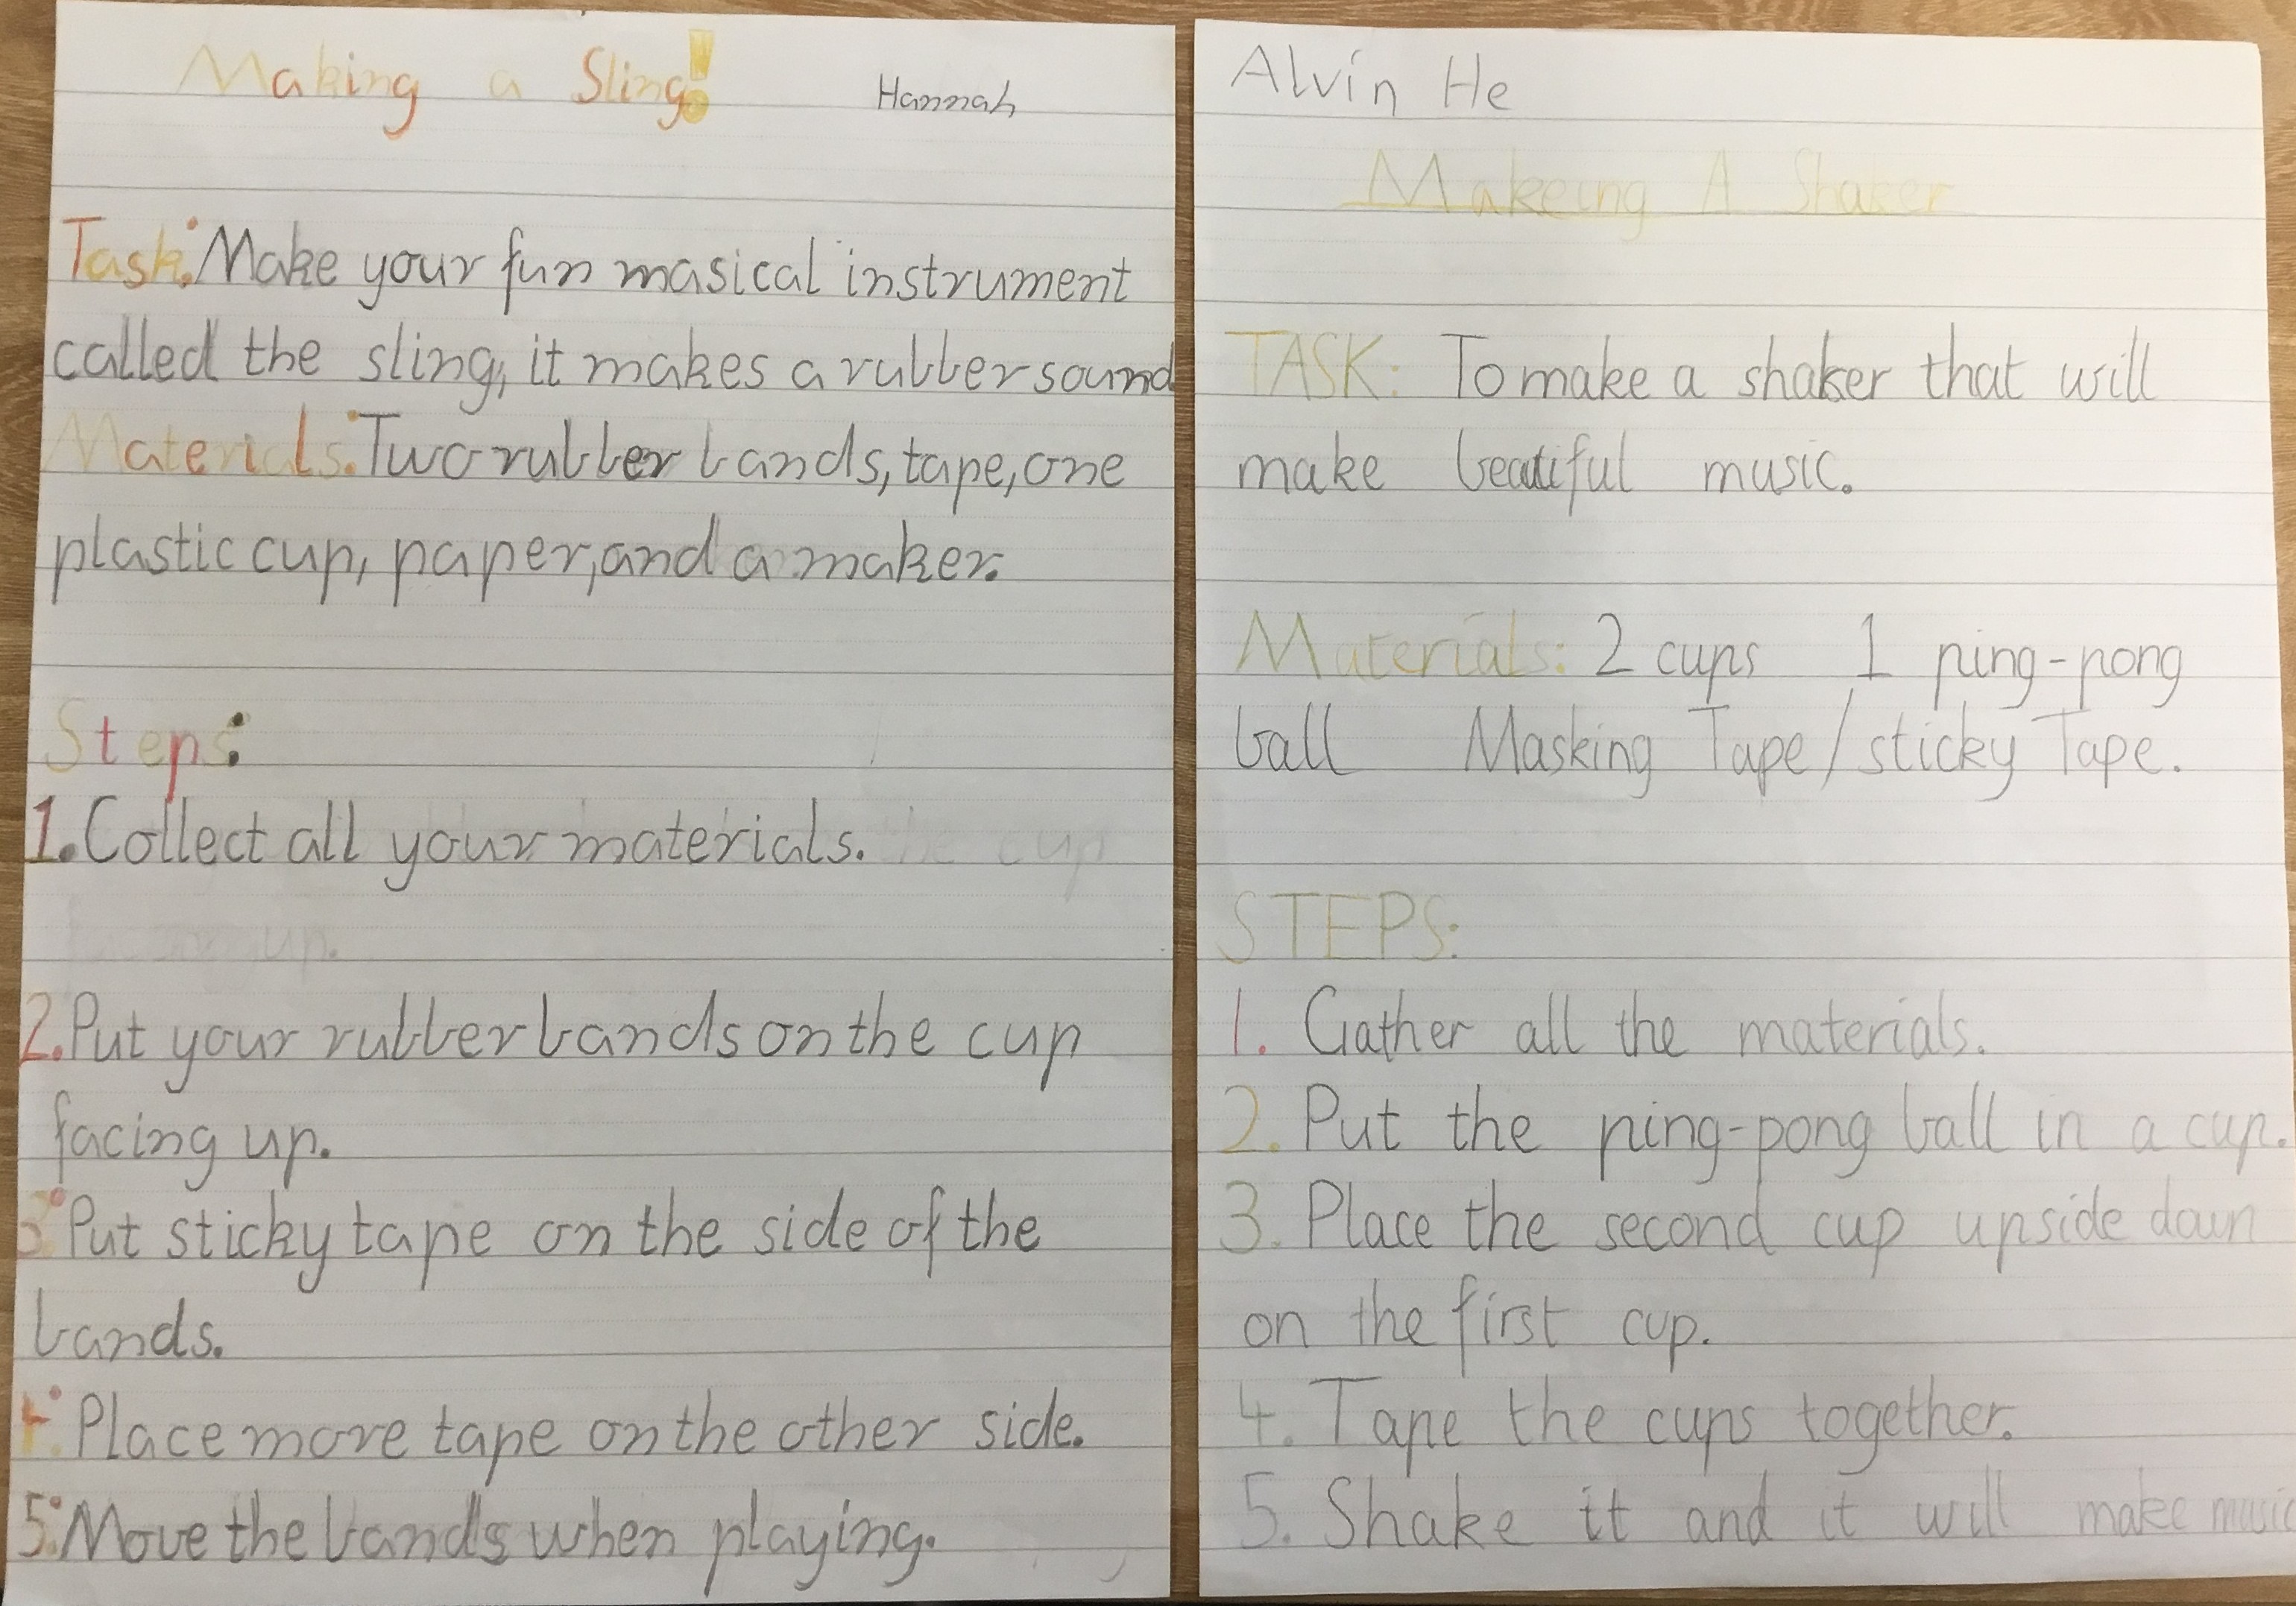 Making a Sling!
Hannah
Task: Make your fun masical instrument
called the sling, it makes a rubber sound
Materials: Two rubber bands, tape, one
plastic cup, paper, and a maker.
Steps:
1. Collect all your materials.
2. Put your rubber bands on the cup
facing up.
3. Put sticky tape on the side of the
bands.
4. Place more tape on the other side.
5. Move the bands when playing.
Alvin He
Makeing A Shaker
TASK: To make a shaker that will
make beatiful music.
Materials: 2 cups 1 ping-pong
ball Masking Tape/sticky Tape.
STEPS:
1. Gather all the materials.
2. Put the ping-pong ball in a cup.
3. Place the second cup upside down
on the first cup.
4. Tape the cups together.
5. Shake it and it will make music